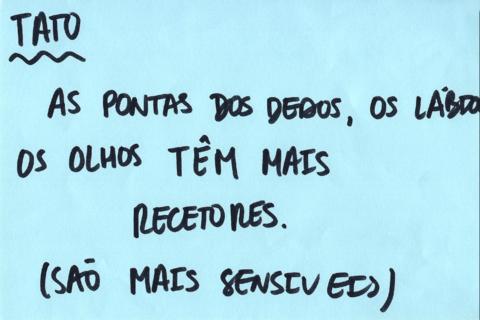 TATO
AS PONTAS DOS DEDOS, OS LÁBIO
OS OLHOS TÊM MAIS
RECETORES.
(SÃO MAIS SENSIVEIS)